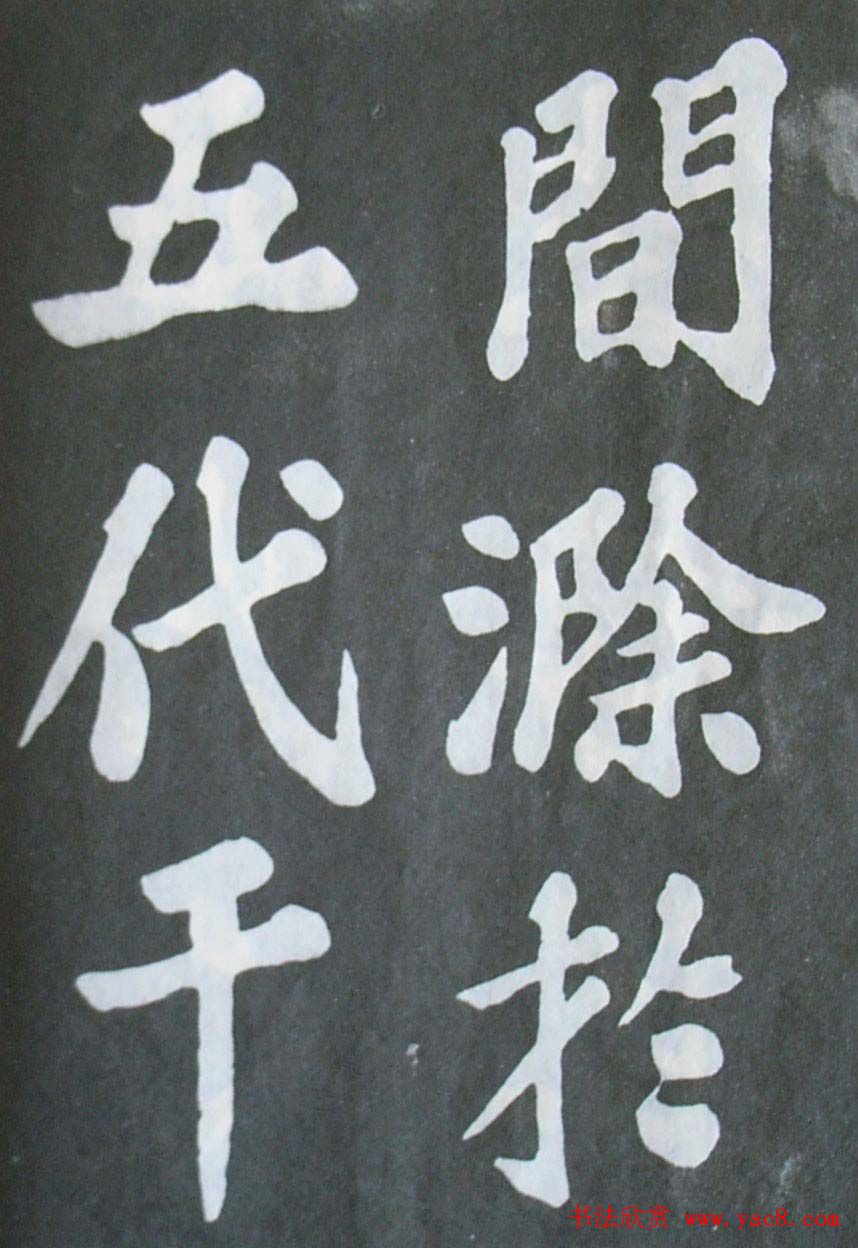 間滁於
五代干
书法欣赏 www.yac8.com